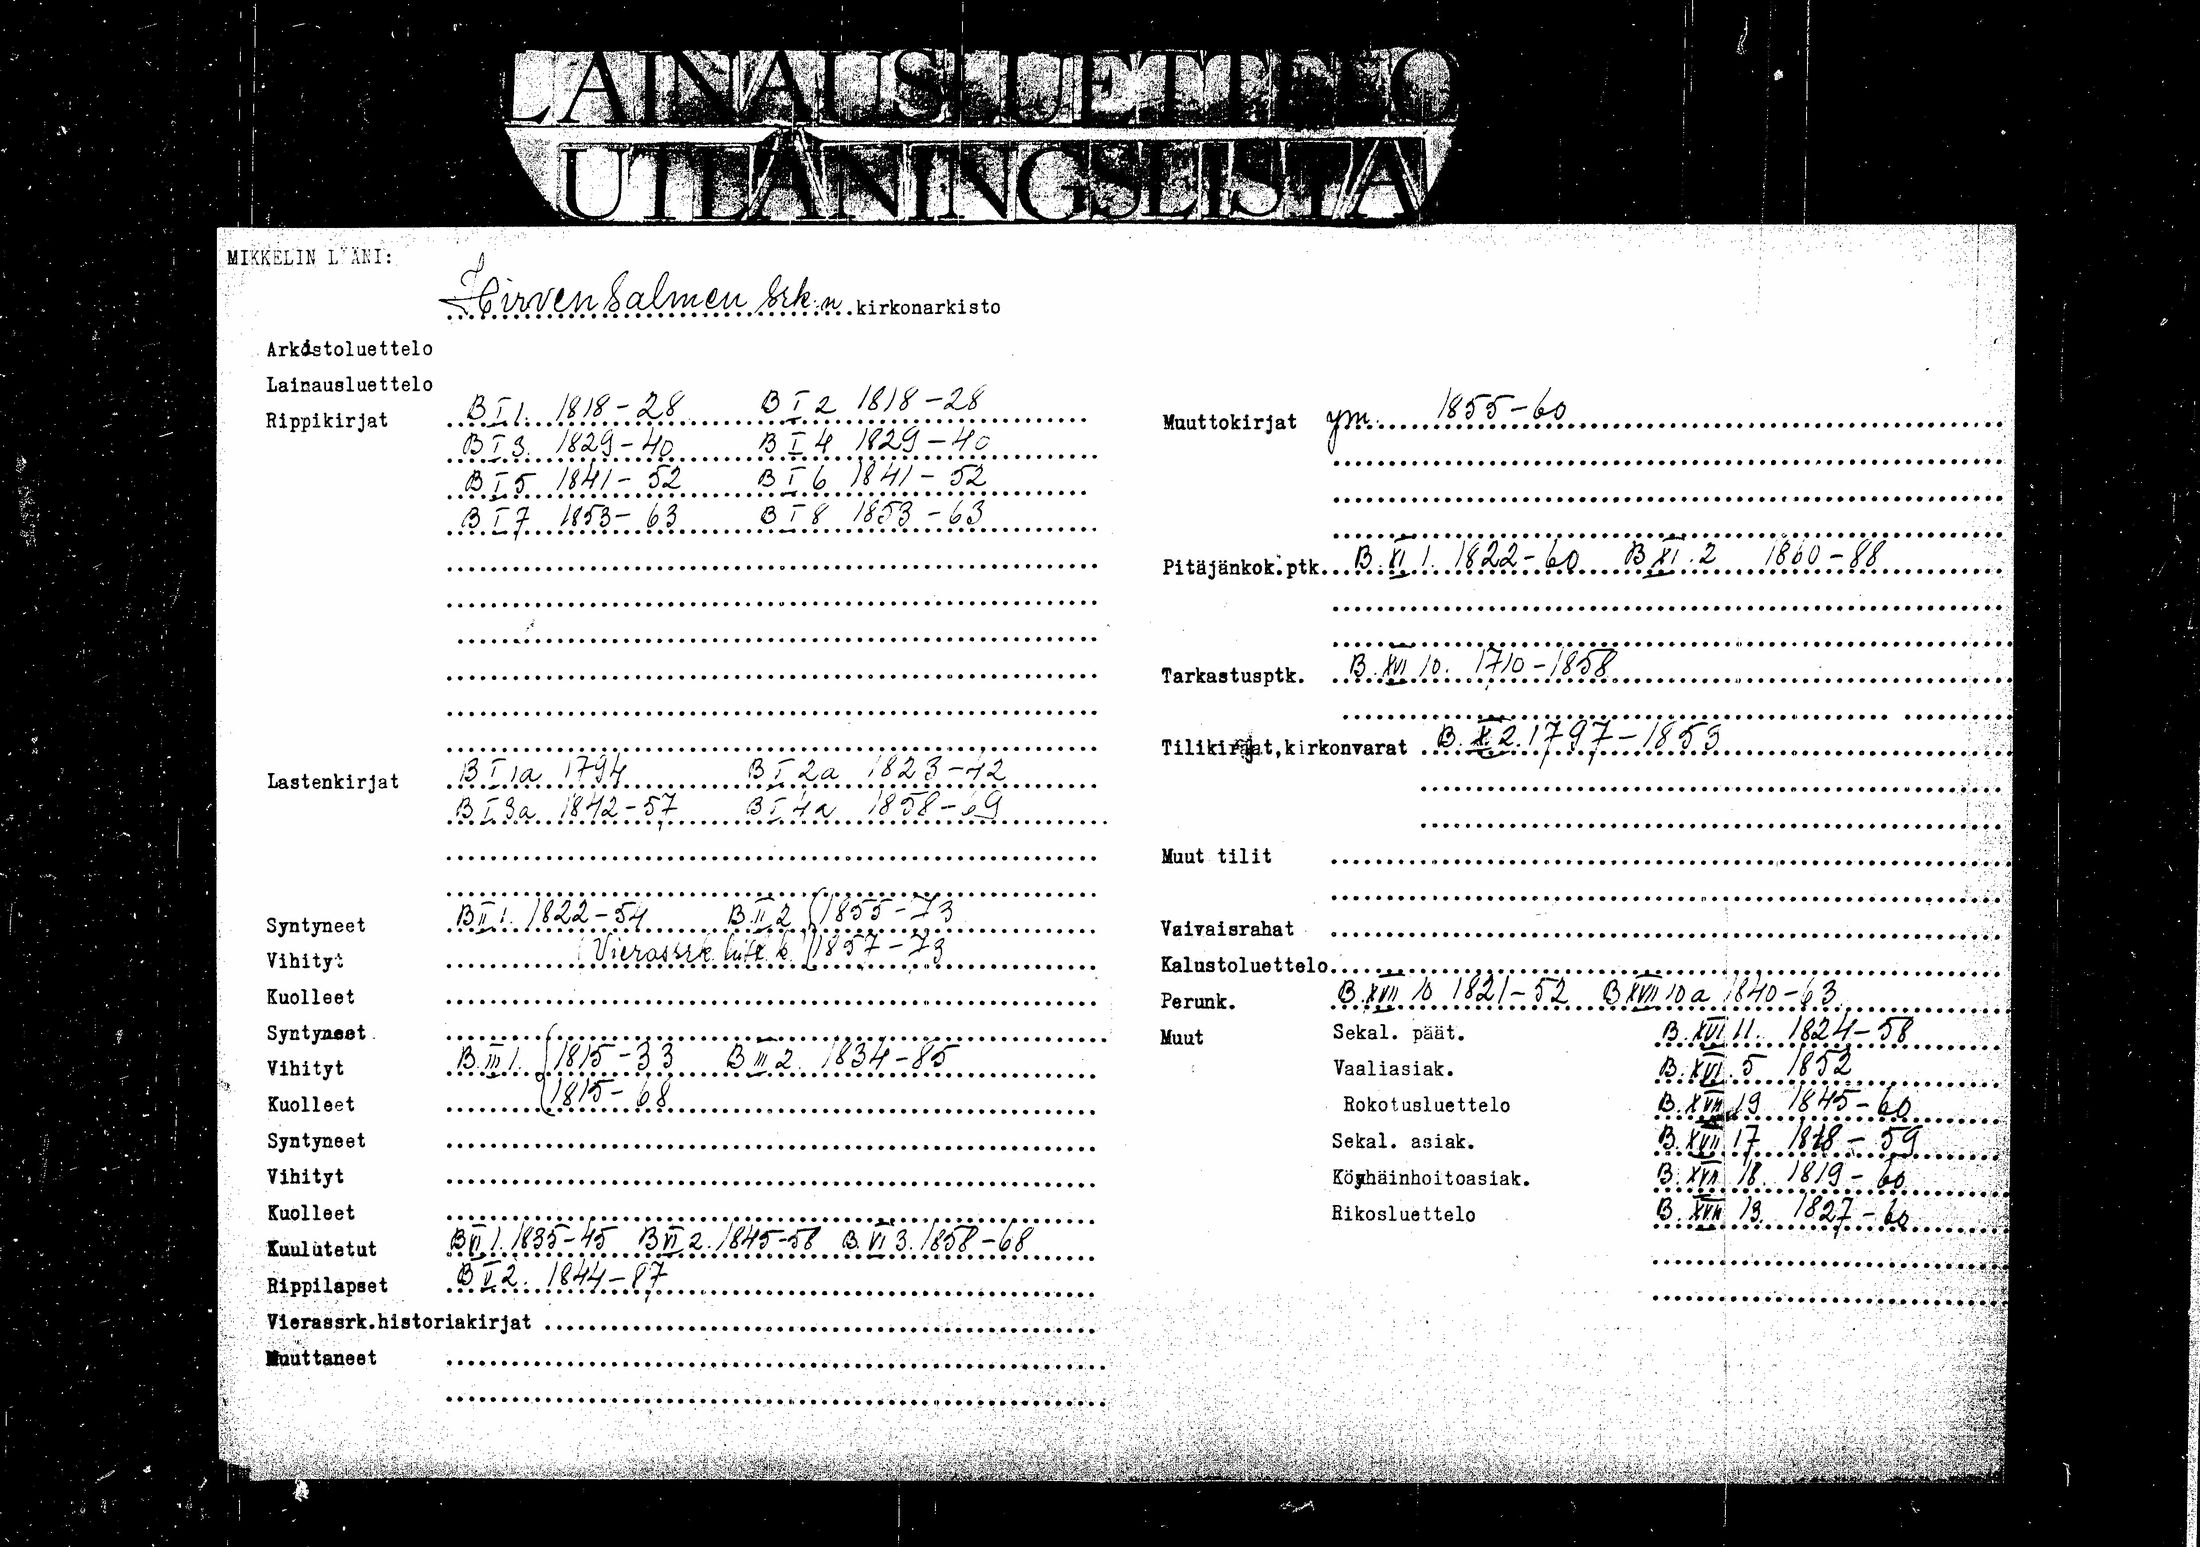 LAINAUSLUETTELO
UTLÅNINGSLISTA
MIKKELIN LÄÄNI:
Hirvensalmen srk:n kirkonarkisto
Arkistoluettelo
Lainausluettelo
Rippikirjat B I 1. 1818-28 B I 2 1818-28
B I 3. 1829-40 B I 4 1829-40
B I 5 1841-52 B I 6 1841-52
B I 7 1853-63 B I 8 1853-63
Lastenkirjat B I 1a 1794 B I 2a 1823-42
B I 3a 1842-57 B I 4a 1858-69
Syntyneet B II 1. 1822-54 B II 2 (1855-73
Vihityt (Vierassrk hist. k.) 1857-73
Kuolleet
Syntyneet
Vihityt B III 1. (1815-33 B III 2. 1834-85
Kuolleet (1815-68
Syntyneet
Vihityt
Kuolleet
Kuulutetut B VI 1. 1835-45 B VI 2. 1845-58 B VI 3. 1858-68
Rippilapset B V 2. 1844-87
Vierassrk.historiakirjat
Muuttaneet
Muuttokirjat ym. 1855-60
Pitäjänkok.ptk. B XI 1. 1822-60 B XI. 2 1860-88
Tarkastusptk. B. XVI 10. 1710-1858
Tilikirjat,kirkonvarat B. X 2. 1797-1853
Muut tilit
Vaivaisrahat
Kalustoluettelo
Perunk. B. XVII 10 1821-52 B XVII 10a 1840-63
Muut Sekal. päät. B. XVI 11. 1824-58
Vaaliasiak. B. XVI. 5 1852
Rokotusluettelo B. XVII 19 1845-60
Sekal. asiak. B. XVII 17 1818-59
Köyhäinhoitoasiak. B. XVII 18. 1819-60
Rikosluettelo B. XVII 13. 1827-60